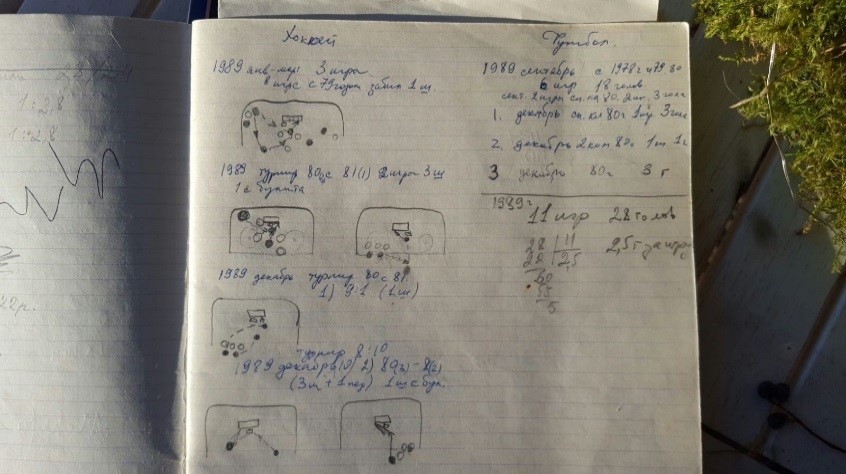 1:28
1:28
22р.
Хоккей
1989 янв-мар 3 игры
в игре с 79 годом забил 1 ш
1989 турнир 80 с 81(1) 2 игры 3 ш
1 с буллита
1989 декабрь турнир 80 с 81
1) 9:1 (1ш)
турнир 8:10
1989 декабрь 2) 80(3) - 8(2)
(3ш + 1 пед) 1ш с бул.
Футбол
1989 сентябрь с 1978 г и 79 80
6 игр 18 голов
сент. 2 игры сп. кл 80. 3 гола
1. декабрь сп. кл 80г 1 игр. 3 гола
2. декабрь 80г 1г
3 декабрь 80г 3г
1989г
11 игр 28 голов
28 11
22 2,5
60
55
5
2,5 г за игру